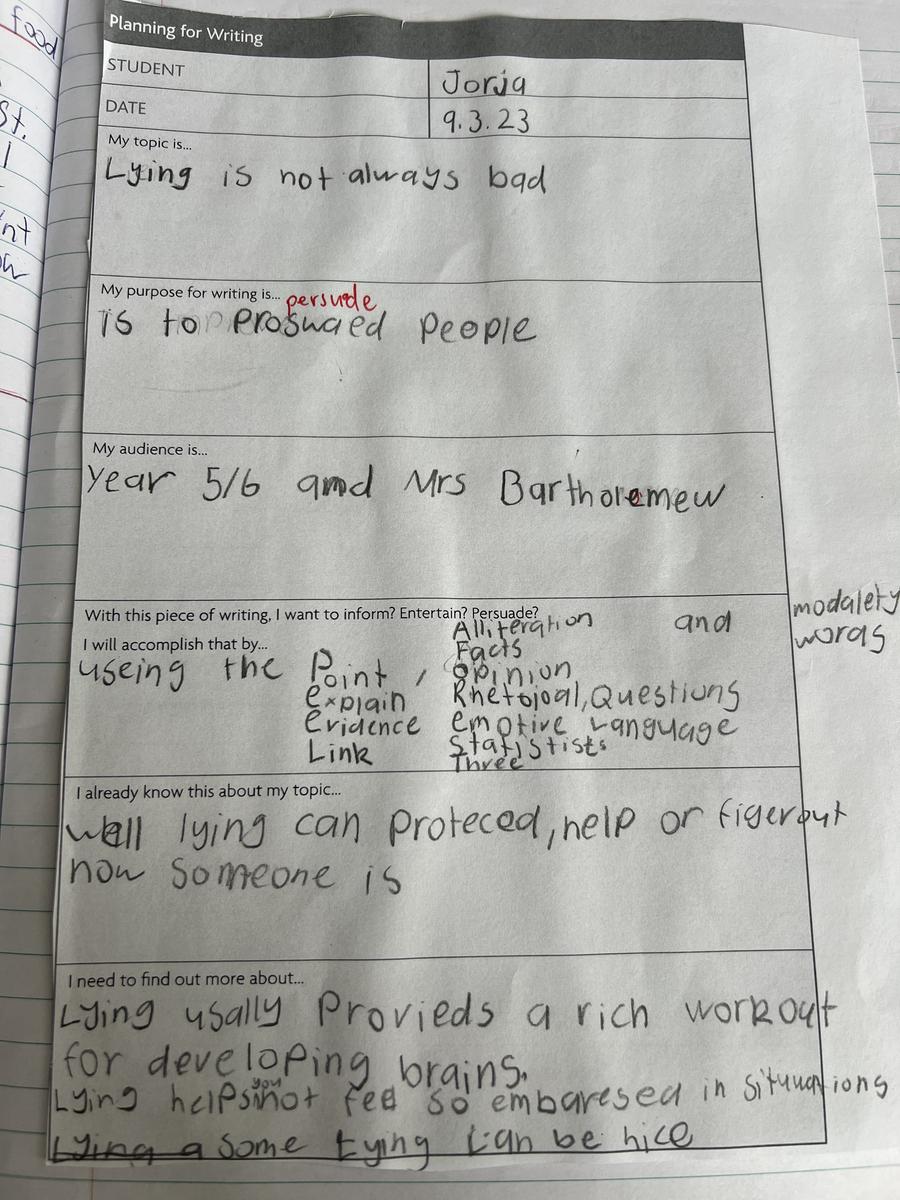 food
St.
Planning for Writing
STUDENT Jorja
DATE 9.3.23
My topic is...
Lying is not always bad
My purpose for writing is... persude
is to proswaed people
My audience is...
Year 5/6 and Mrs Bartholemew
With this piece of writing, I want to inform? Entertain? Persuade?
I will accomplish that by...
useing the Point,
explain
Evidence
Link
Alliteration
Facts
opinion
Rhetojoal, Questions
emotive Language
Statistists
Three
and modalety
words
I already know this about my topic...
Well lying can proteced, help or figerout
how someone is
I need to find out more about...
Lying usally Provieds a rich workout
for developing brains.
Lying helps you not feel so embaresed in situuations
Lying a some Lying can be nice